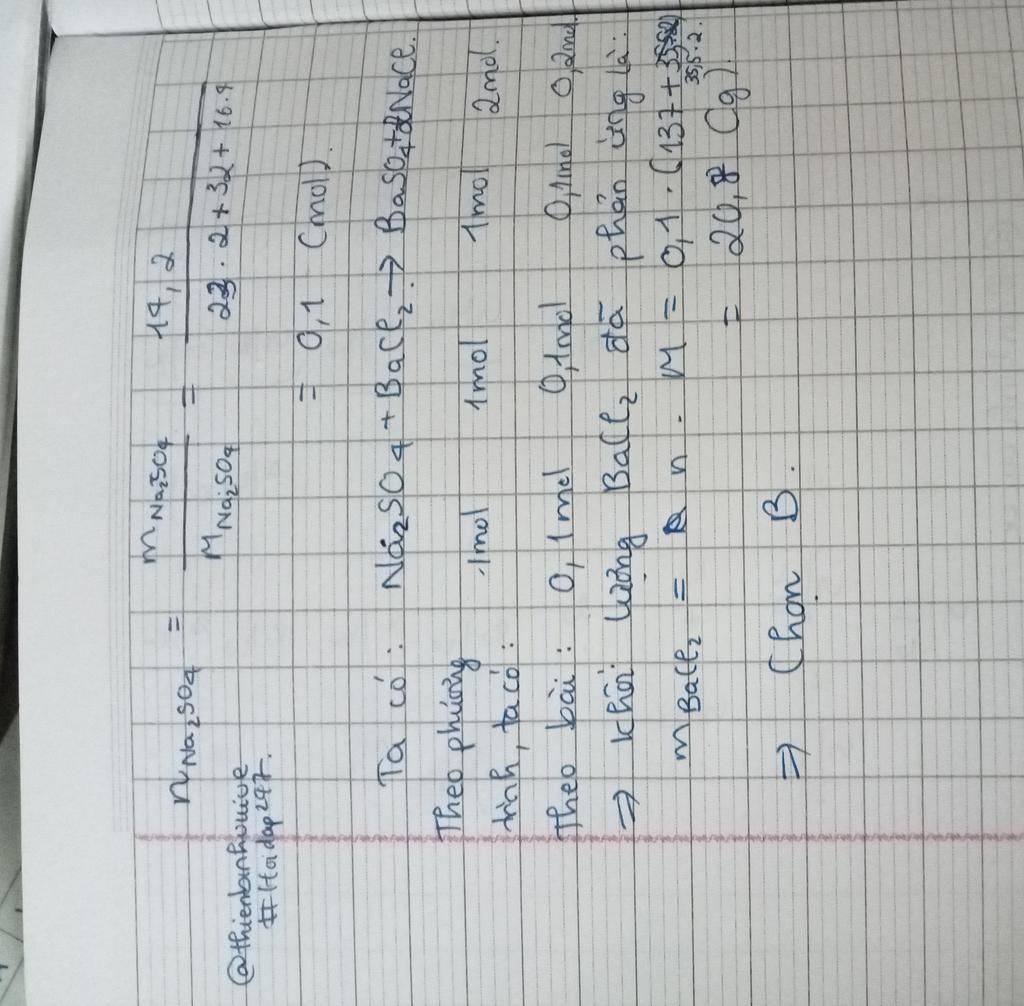 @thienbinhouive
#Hoidap247.
n Na₂SO₄ = m Na₂SO₄ / M Na₂SO₄ = 14,2 / 23.2+32+16.4
= 0,1 (mol).
Ta có: Na₂SO₄ + BaCl₂ → BaSO₄ + 2NaCl.
Theo phương trình, ta có: 1mol 1mol 1mol 2mol.
Theo bài: 0,1mol 0,1mol 0,1mol 0,2mol.
⇒ khối lượng BaCl₂ đã phản ứng là:
m BaCl₂ = n . M = 0,1 . (137 + 35,5.2)
= 20,8 (g).
⇒ Chọn B.